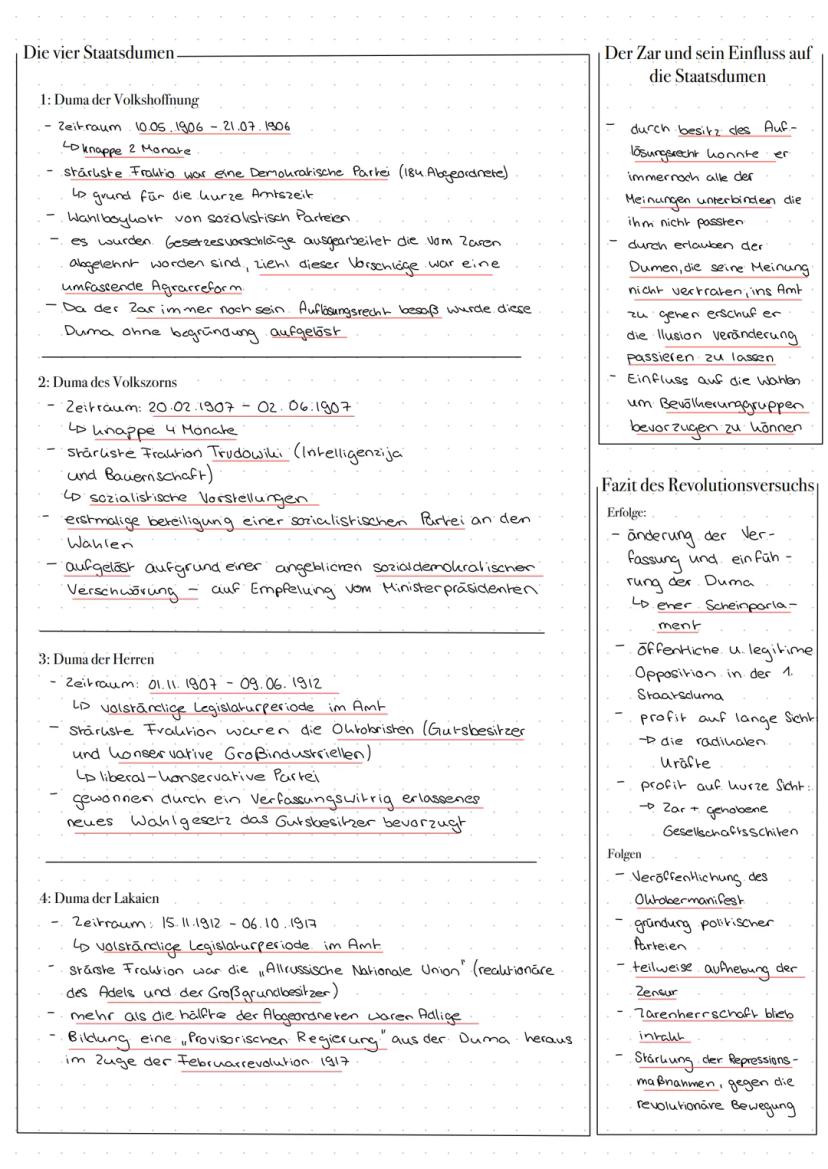 Die vier Staatsdumen
1: Duma der Volkshoffnung
- Zeitraum 10.05.1906 - 21.07.1906
↳ knappe 2 Monate
- stärkste Fraktio war eine Demokratische Partei (184 Abgeordnete)
↳ grund für die kurze Amtszeit
- Wahlboykott von sozialistisch Parteien
- es wurden Gesetzesvorschläge ausgearbeitet die vom Zaren
abgelehnt worden sind, ziehl dieser Vorschläge war eine
umfassende Agrarreform
- Da der Zar immer noch sein Auflösungsrecht besaß wurde diese
Duma ohne begründung aufgelöst
2: Duma des Volkszorns
- Zeitraum: 20.02.1907 - 02.06.1907
↳ knappe 4 Monate
- stärkste Fraktion Trudowiki (Intelligenzija
und Bauernschaft)
↳ sozialistische Vorstellungen
- erstmalige beteiligung einer sozialistischen Partei an den
Wahlen
- aufgelöst aufgrund einer angeblichen sozialdemokratischer
Verschwörung - auf Empfelung vom Ministerpräsidenten
3: Duma der Herren
- Zeitraum: 01.11.1907 - 09.06.1912
↳ volständige Legislaturperiode im Amt
- stärkste Fraktion waren die Oktobristen (Gutsbesitzer
und konservative Großindustriellen)
↳ liberal-konservative Partei
- gewonnen durch ein Verfassungswitrig erlassenes
neues Wahlgesetz das Gutsbesitzer bevorzugt
4: Duma der Lakaien
- Zeitraum: 15.11.1912 - 06.10.1917
↳ volständige Legislaturperiode im Amt
- stärste Fraktion war die „Allrussische Nationale Union" (reaktionäre
des Adels und der Großgrundbesitzer)
- mehr als die hälfte der Abgeordneten waren Adlige
- Bildung eine „Provisorischen Regierung" aus der Duma heraus
im Zuge der Februarrevolution 1917
Der Zar und sein Einfluss auf
die Staatsdumen
- durch besitz des Auf-
lösungsrecht konnte er
immernoch alle der
Meinungen unterbinden die
ihm nicht passten
- durch erlauben der
Dumen, die seine Meinung
nicht vertraten, ins Amt
zu gehen erschuf er
die Ilusion Veränderung
passieren zu lassen
- Einfluss auf die Wahlen
um Bevölkerunggruppen
bevorzugen zu können
Fazit des Revolutionsversuchs
Erfolge:
- änderung der Ver-
fassung und einfüh-
rung der Duma
↳ eher Scheinparla-
ment
- öffentliche u. legitime
Opposition in der 1.
Staatsduma
- profit auf lange Sicht
→ die radikalen
Kräfte
- profit auf kurze Sicht:
→ Zar + gehobene
Gesellschaftsschiten
Folgen
- Veröffentlichung des
Oktobermanifest
- gründung politischer
Parteien
- teilweise aufhebung der
Zensur
- Zarenherrschaft bleb
intakt
- Stärkung der Repressions-
maßnahmen, gegen die
revolutionäre Bewegung